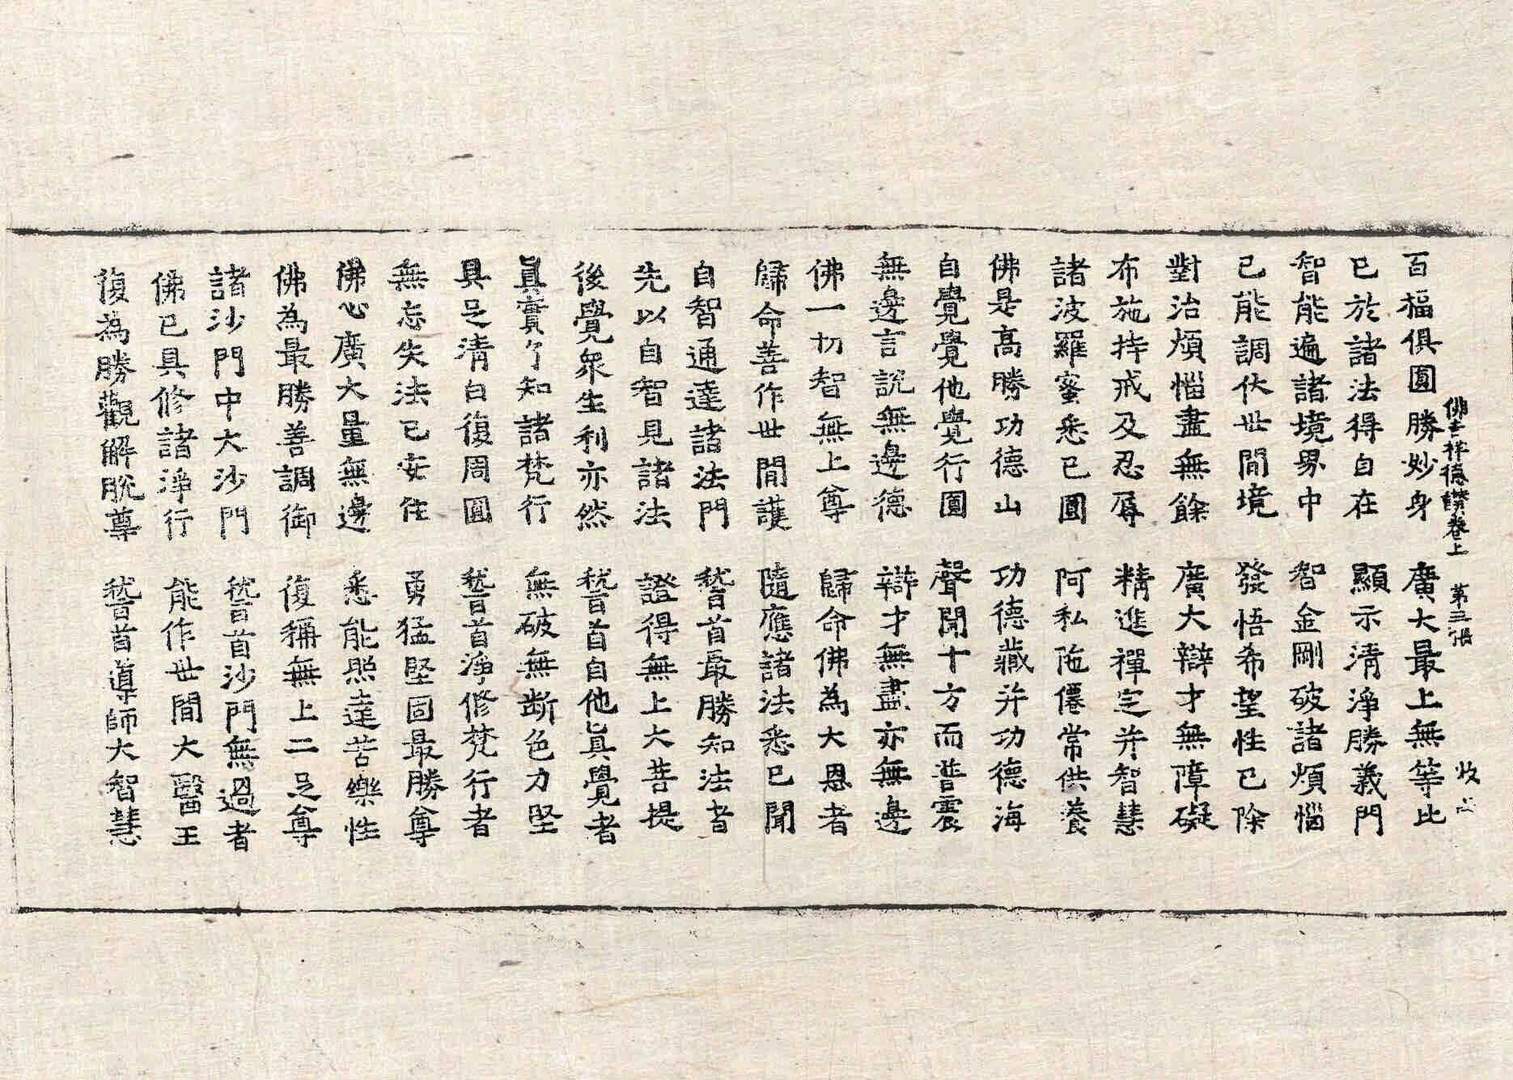 佛吉祥德讚卷上 第三張 收
百福俱圓勝妙身 廣大最上無等比
已於諸法得自在 顯示清淨勝義門
智能遍諸境界中 智金剛破諸煩惱
已能調伏世間境 發悟希望性已除
對治煩惱盡無餘 廣大辯才無障礙
布施持戒及忍辱 精進禪定并智慧
諸波羅蜜悉已圓 阿私陁僊常供養
佛是高勝功德山 功德藏并功德海
自覺覺他覺行圓 聲聞十方而普震
無邊言說無邊德 辯才無盡亦無邊
佛一切智無上尊 歸命佛為大恩者
歸命善作世間護 隨應諸法悉已聞
自智通達諸法門 稽首最勝知法者
先以自智見諸法 證得無上大菩提
後覺眾生利亦然 稽首自他真覺者
真實了知諸梵行 無破無斷色力堅
具足清白復周圓 稽首淨修梵行者
無忘失法已安住 勇猛堅固最勝尊
佛心廣大量無邊 悉能照達苦樂性
佛為最勝善調御 復稱無上二足尊
諸沙門中大沙門 稽首沙門無過者
佛已具修諸淨行 能作世間大醫王
復為勝觀解脫尊 稽首導師大智慧